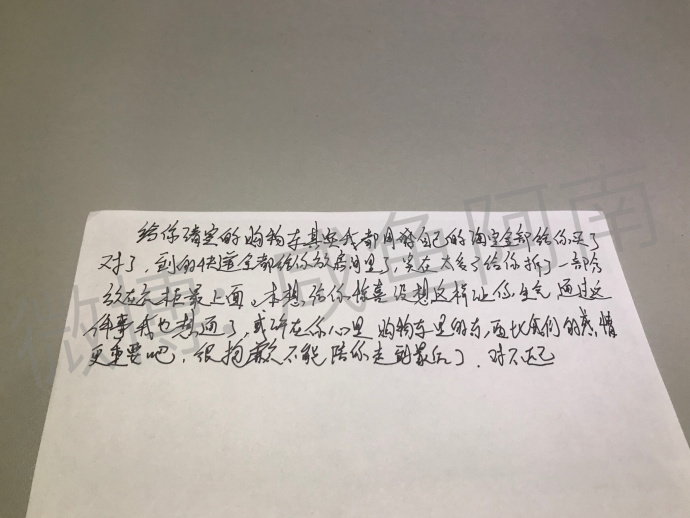 给你清空的购物车其实我都用我自己的淘宝全部给你买了
对了，到的快递全都给你放房间里了，实在太多了给你拆了一部分
放在衣柜最上面。本想给你惊喜没想这样让你生气，通过这
件事我也想通了，或许在你心里购物车里的东西比我们的感情
更重要吧，很抱歉不能陪你走到最后了．对不起
微博：咸鱼阿南